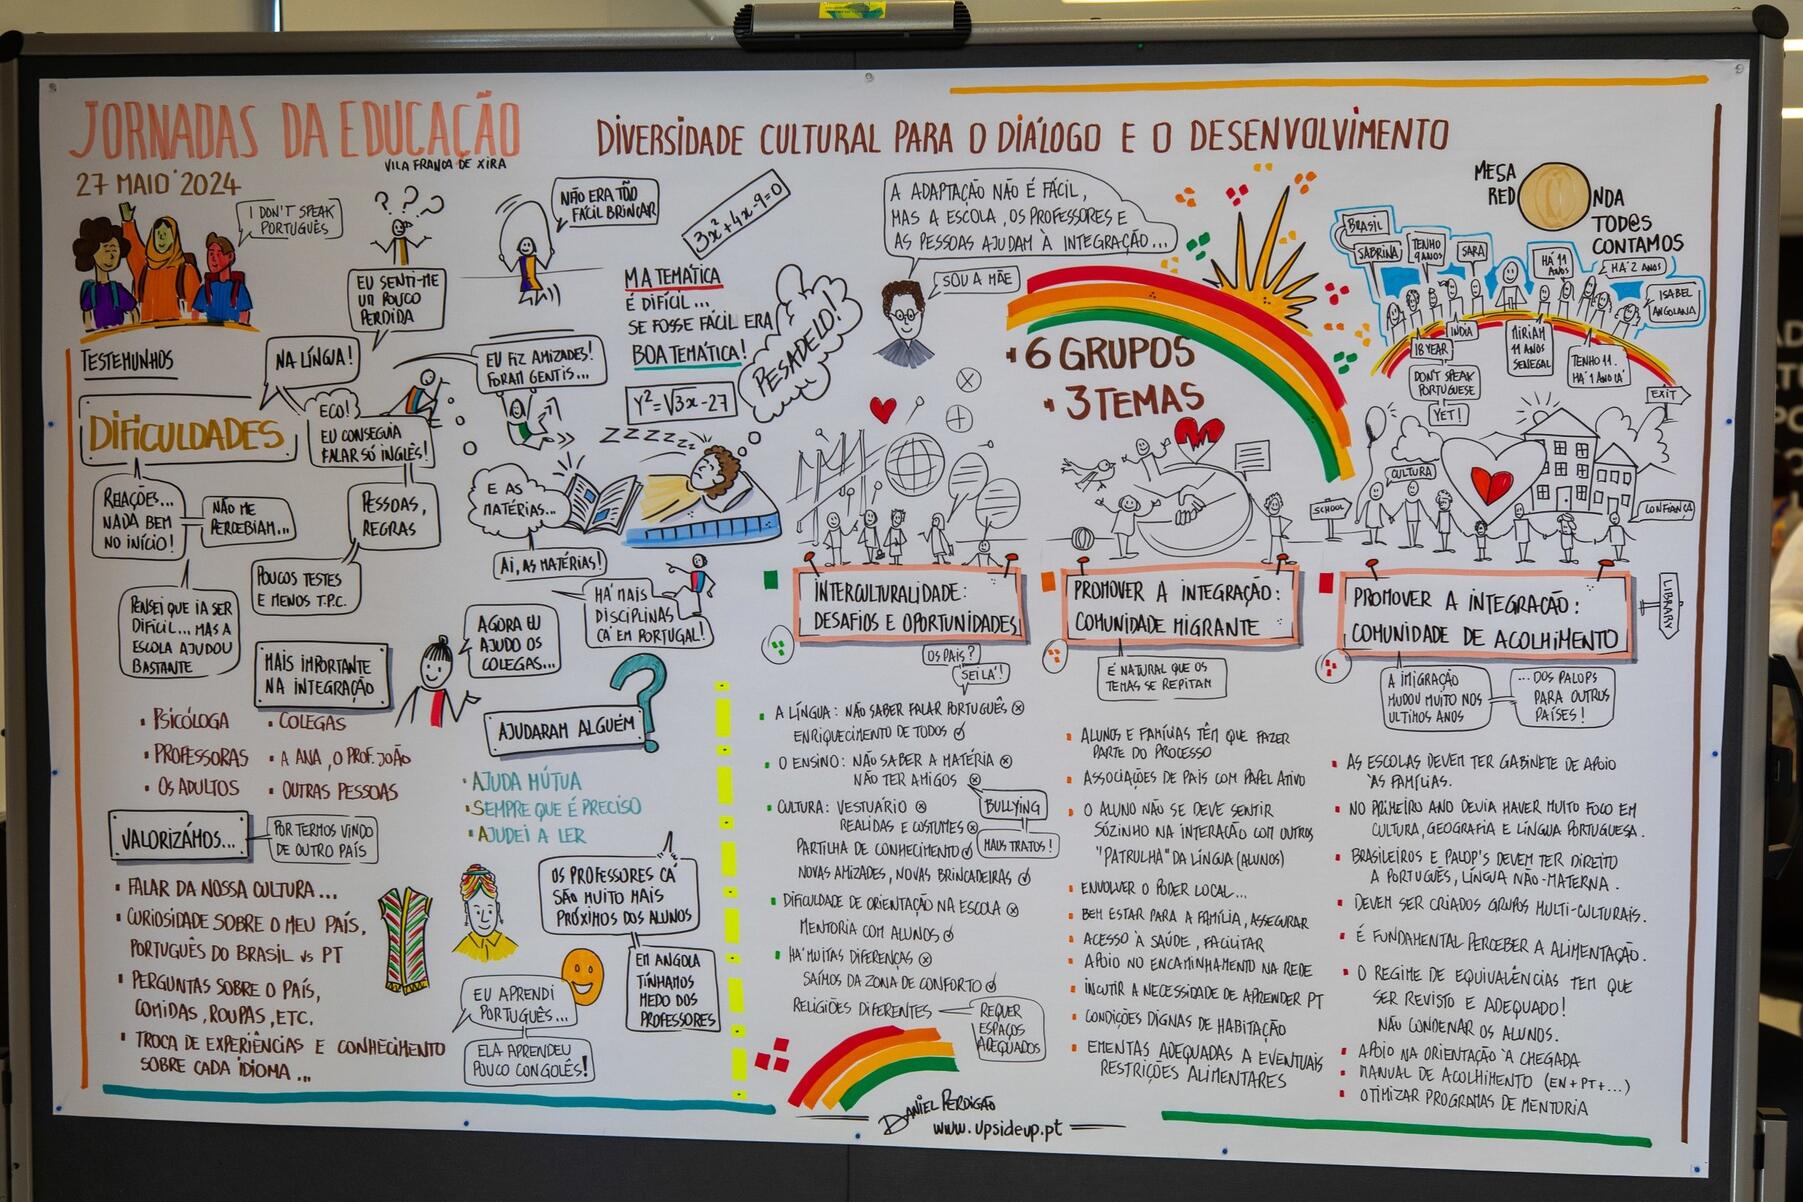 JORNADAS DA EDUCAÇÃO
VILA FRANCA DE XIRA
27 MAIO'2024
DIVERSIDADE CULTURAL PARA O DIÁLOGO E O DESENVOLVIMENTO
I DON'T SPEAK
PORTUGUÊS
? ? ?
EU SENTI-ME
UM POUCO
PERDIDA
NÃO ERA TÃO
FÁCIL BRINCAR
3x²+4x-9=0
MATEMÁTICA
É DIFÍCIL...
SE FOSSE FÁCIL ERA
BOA TEMÁTICA!
PESADELO!
Y²=√3x-27
TESTEMUNHOS
NA LÍNGUA!
DIFICULDADES
ECO!
EU CONSEGUIA
FALAR SÓ INGLÊS!
EU FIZ AMIZADES!
FORAM GENTIS...
RELAÇÕES...
NADA BEM
NO INÍCIO!
NÃO ME
PERCEBIAM...
PESSOAS,
REGRAS
POUCOS TESTES
E MENOS T.P.C.
PENSEI QUE IA SER
DIFÍCIL... MAS A
ESCOLA AJUDOU
BASTANTE
ZZZZZZZ
E AS
MATÉRIAS...
AI, AS MATÉRIAS!
HÁ MAIS
DISCIPLINAS
CÁ EM PORTUGAL!
AGORA EU
AJUDO OS
COLEGAS...
MAIS IMPORTANTE
NA INTEGRAÇÃO
• PSICÓLOGA
• PROFESSORAS
• OS ADULTOS
• COLEGAS
• A ANA, O PROF. JOÃO
• OUTRAS PESSOAS
AJUDARAM ALGUÉM
?
• AJUDA MÚTUA
• SEMPRE QUE É PRECISO
• AJUDEI A LER
VALORIZÁMOS...
POR TERMOS VINDO
DE OUTRO PAÍS
• FALAR DA NOSSA CULTURA...
• CURIOSIDADE SOBRE O MEU PAÍS,
PORTUGUÊS DO BRASIL vs PT
• PERGUNTAS SOBRE O PAÍS,
COMIDAS, ROUPAS, ETC.
• TROCA DE EXPERIÊNCIAS E CONHECIMENTO
SOBRE CADA IDIOMA...
OS PROFESSORES CÁ
SÃO MUITO MAIS
PRÓXIMOS DOS ALUNOS
EM ANGOLA
TÍNHAMOS
MEDO DOS
PROFESSORES
EU APRENDI
PORTUGUÊS...
ELA APRENDEU
POUCO CONGOLÊS!
A ADAPTAÇÃO NÃO É FÁCIL,
MAS A ESCOLA, OS PROFESSORES E
AS PESSOAS AJUDAM À INTEGRAÇÃO...
SOU A MÃE
• 6 GRUPOS
• 3 TEMAS
MESA
REDONDA
TOD@S
CONTAMOS
BRASIL
SABRINA
TENHO
9 ANOS
SARA
HÁ 11
ANOS
HÁ 2 ANOS
ISABEL
ANGOLANA
ÍNDIA
18 YEAR
DON'T SPEAK
PORTUGUESE
YET!
MIRIAM
11 ANOS
SENEGAL
TENHO 11.
HÁ 1 ANO CÁ
EXIT
CULTURA
SCHOOL
CONFIANÇA
LIBRARY
INTERCULTURALIDADE:
DESAFIOS E OPORTUNIDADES
OS PAIS?
SEI LÁ!
• A LÍNGUA: NÃO SABER FALAR PORTUGUÊS
ENRIQUECIMENTO DE TODOS
• O ENSINO: NÃO SABER A MATÉRIA
NÃO TER AMIGOS
• CULTURA: VESTUÁRIO
REALIDAS E COSTUMES
BULLYING
MAUS TRATOS!
PARTILHA DE CONHECIMENTO
NOVAS AMIZADES, NOVAS BRINCADEIRAS
• DIFICULDADE DE ORIENTAÇÃO NA ESCOLA
MENTORIA COM ALUNOS
• HÁ MUITAS DIFERENÇAS
SAÍMOS DA ZONA DE CONFORTO
RELIGIÕES DIFERENTES
REQUER
ESPAÇOS
ADEQUADOS
PROMOVER A INTEGRAÇÃO:
COMUNIDADE MIGRANTE
É NATURAL QUE OS
TEMAS SE REPITAM
• ALUNOS E FAMÍLIAS TÊM QUE FAZER
PARTE DO PROCESSO
• ASSOCIAÇÕES DE PAIS COM PAPEL ATIVO
• O ALUNO NÃO SE DEVE SENTIR
SÓZINHO NA INTERAÇÃO COM OUTROS
"PATRULHA" DA LÍNGUA (ALUNOS)
• ENVOLVER O PODER LOCAL...
• BEM ESTAR PARA A FAMÍLIA, ASSEGURAR
• ACESSO À SAÚDE, FACILITAR
• APOIO NO ENCAMINHAMENTO NA REDE
• INCUTIR A NECESSIDADE DE APRENDER PT
• CONDIÇÕES DIGNAS DE HABITAÇÃO
• EMENTAS ADEQUADAS A EVENTUAIS
RESTRIÇÕES ALIMENTARES
PROMOVER A INTEGRAÇÃO:
COMUNIDADE DE ACOLHIMENTO
A IMIGRAÇÃO
MUDOU MUITO NOS
ULTIMOS ANOS
... DOS PALOPS
PARA OUTROS
PAÍSES!
• AS ESCOLAS DEVEM TER GABINETE DE APOIO
ÀS FAMÍLIAS.
• NO PRIMEIRO ANO DEVIA HAVER MUITO FOCO EM
CULTURA, GEOGRAFIA E LÍNGUA PORTUGUESA.
• BRASILEIROS E PALOP'S DEVEM TER DIREITO
A PORTUGUÊS, LÍNGUA NÃO-MATERNA.
• DEVEM SER CRIADOS GRUPOS MULTI-CULTURAIS.
• É FUNDAMENTAL PERCEBER A ALIMENTAÇÃO.
• O REGIME DE EQUIVALÊNCIAS TEM QUE
SER REVISTO E ADEQUADO!
NÃO CONDENAR OS ALUNOS.
• APOIO NA ORIENTAÇÃO À CHEGADA
• MANUAL DE ACOLHIMENTO (EN+PT+...)
• OTIMIZAR PROGRAMAS DE MENTORIA
DANIEL PERDIGÃO
www.upsideup.pt